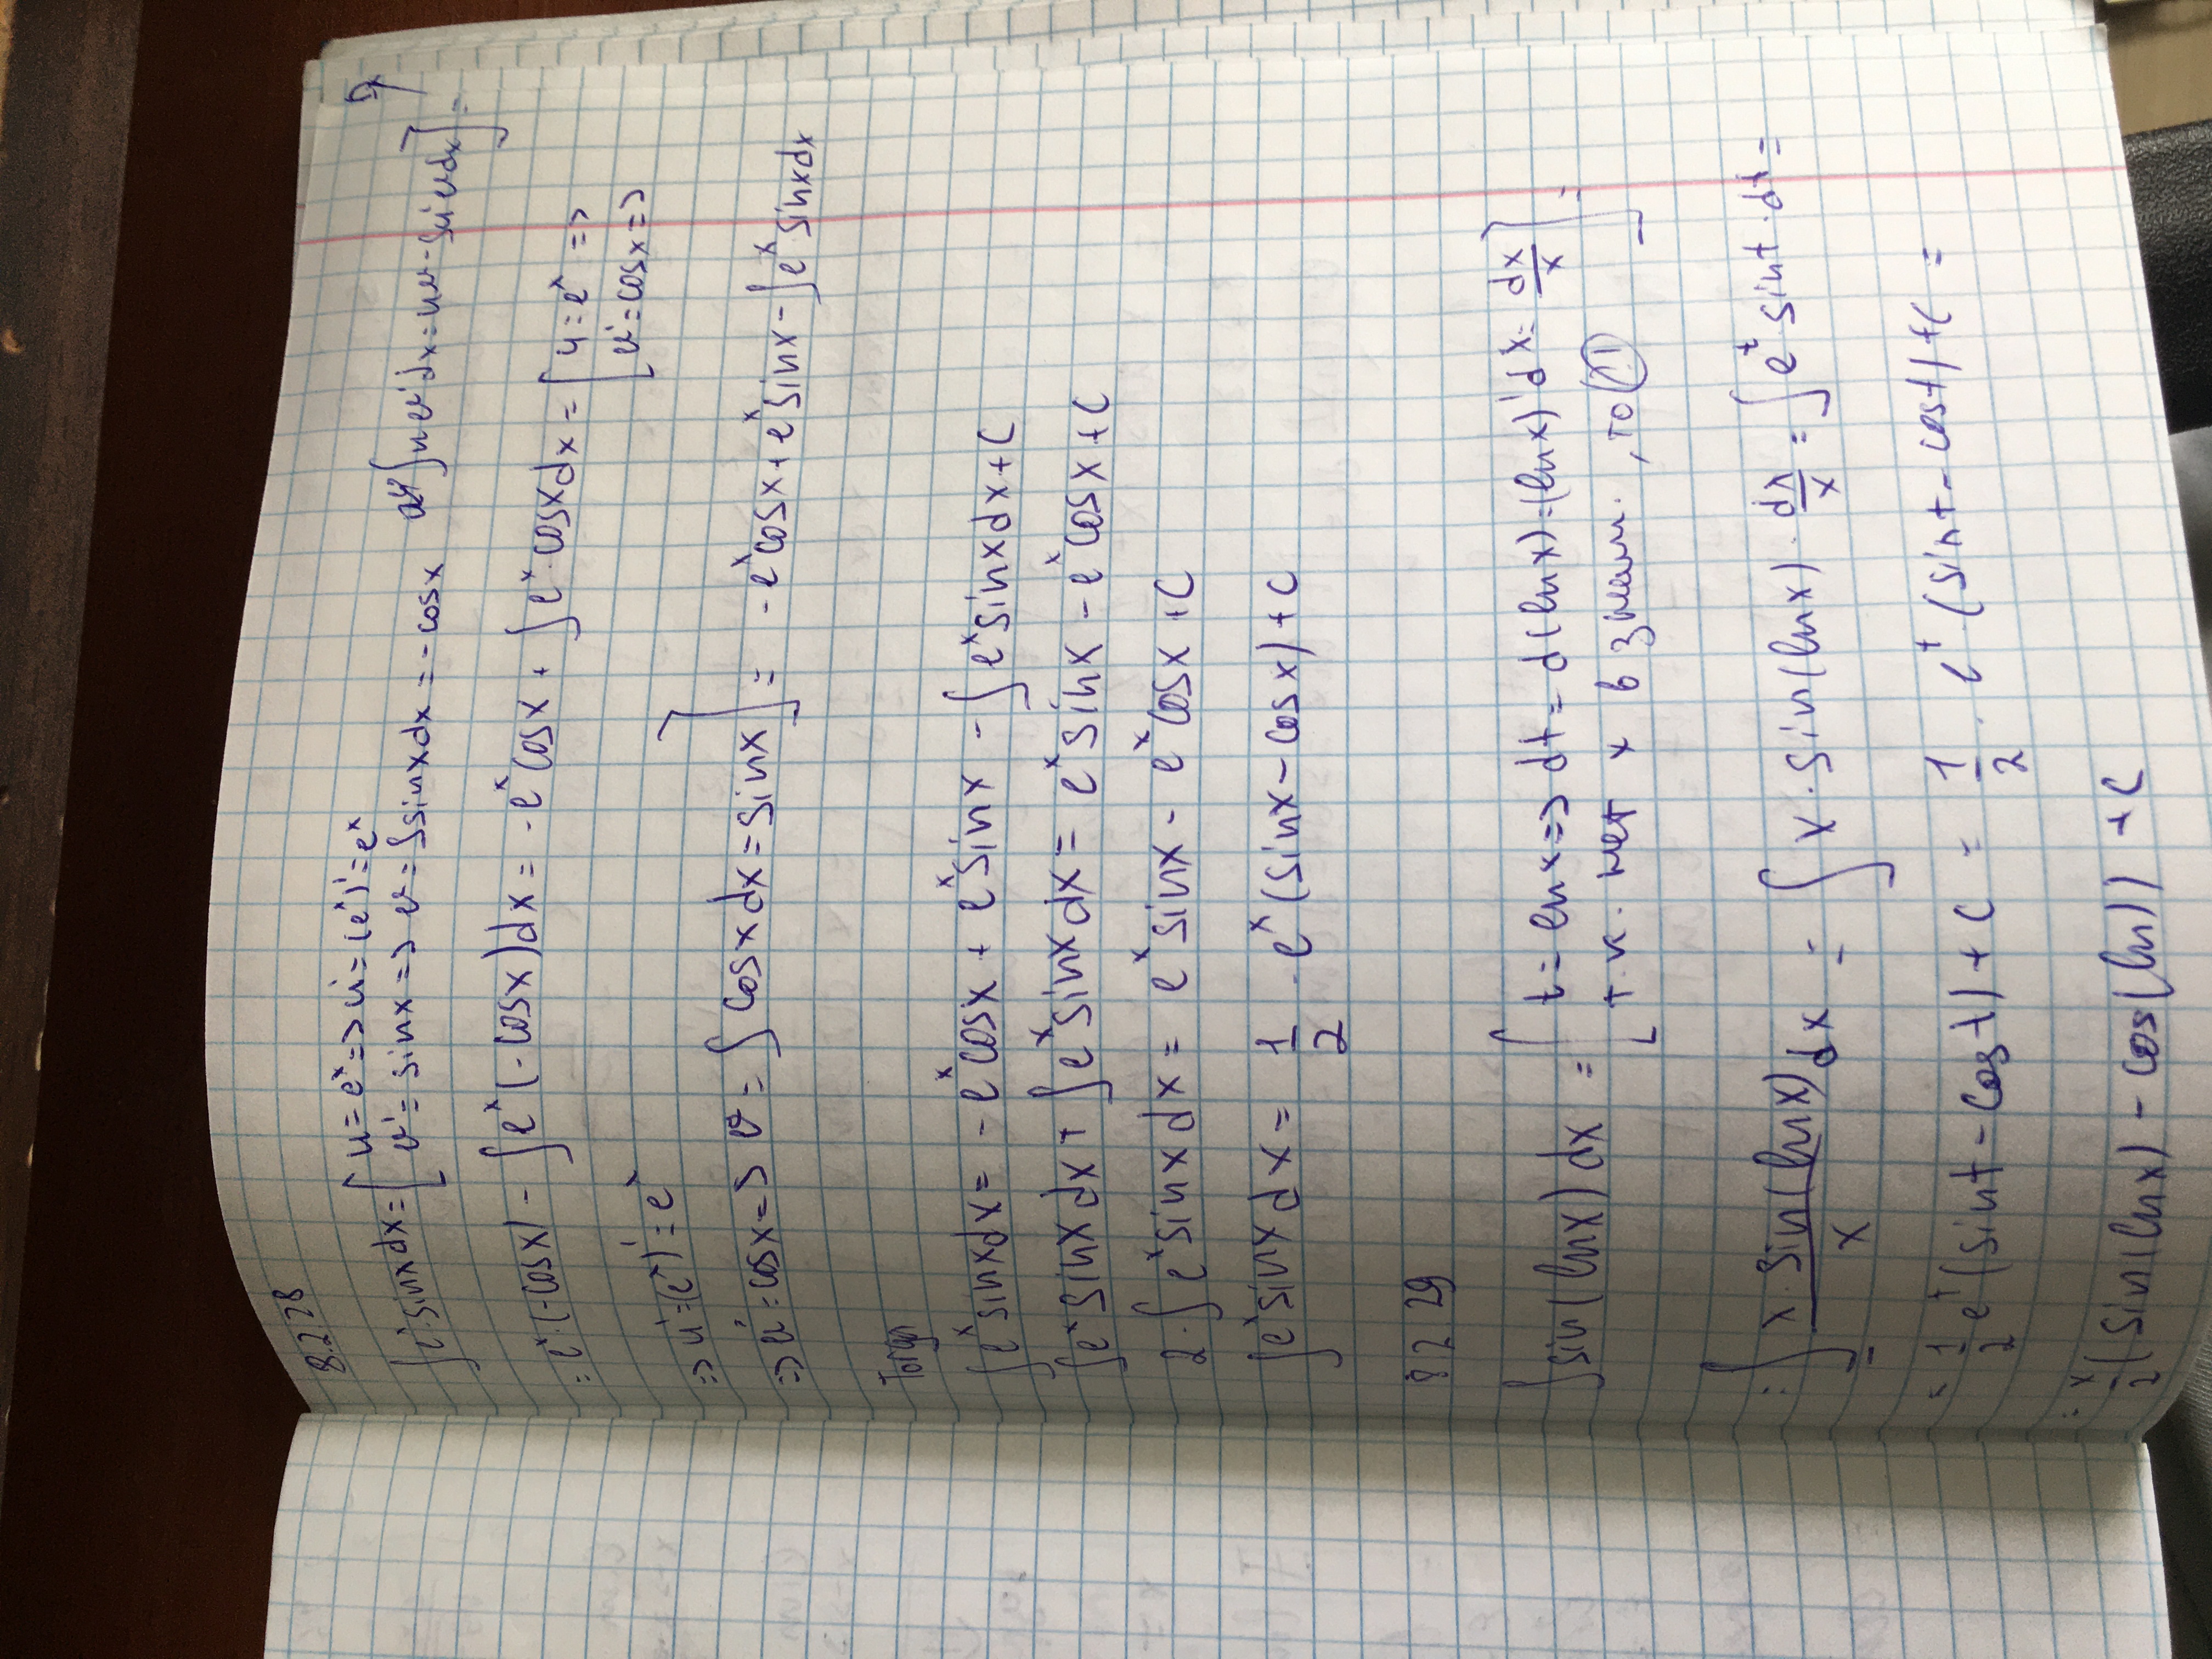 8.2.28
∫e^x·sinx dx = [ u = e^x => u' = (e^x)' = e^x
v' = sinx => v = ∫sinx dx = -cosx ∫uv'dx = uv - ∫u'vdx ] =
= e^x·(-cosx) - ∫e^x(-cosx)dx = -e^x cosx + ∫e^x·cosx dx = [ u = e^x =>
v' = cosx =>
=> u' = (e^x)' = e^x
=> v' = cosx => v = ∫cosx dx = sinx ] = -e^x cosx + e^x sinx - ∫e^x sinx dx
Тогда
∫e^x sinx dx = -e^x cosx + e^x sinx - ∫e^x sinx dx + C
∫e^x sinx dx + ∫e^x sinx dx = e^x sinx - e^x cosx + C
2·∫e^x sinx dx = e^x sinx - e^x cosx + C
∫e^x sinx dx = 1/2 · e^x (sinx - cosx) + C
8.2 29
∫sin(lnx) dx = [ t = lnx => dt = d(lnx) = (lnx)'dx = dx/x
т.к. нет x в знам., то ] =
= ∫ x·sin(lnx)/x dx = ∫x·sin(lnx)·dx/x = ∫e^t·sint·dt =
= 1/2 e^t (sint - cost) + C = 1/2 · e^t (sint - cost) + C =
= x/2 (sin(lnx) - cos(ln)) + C